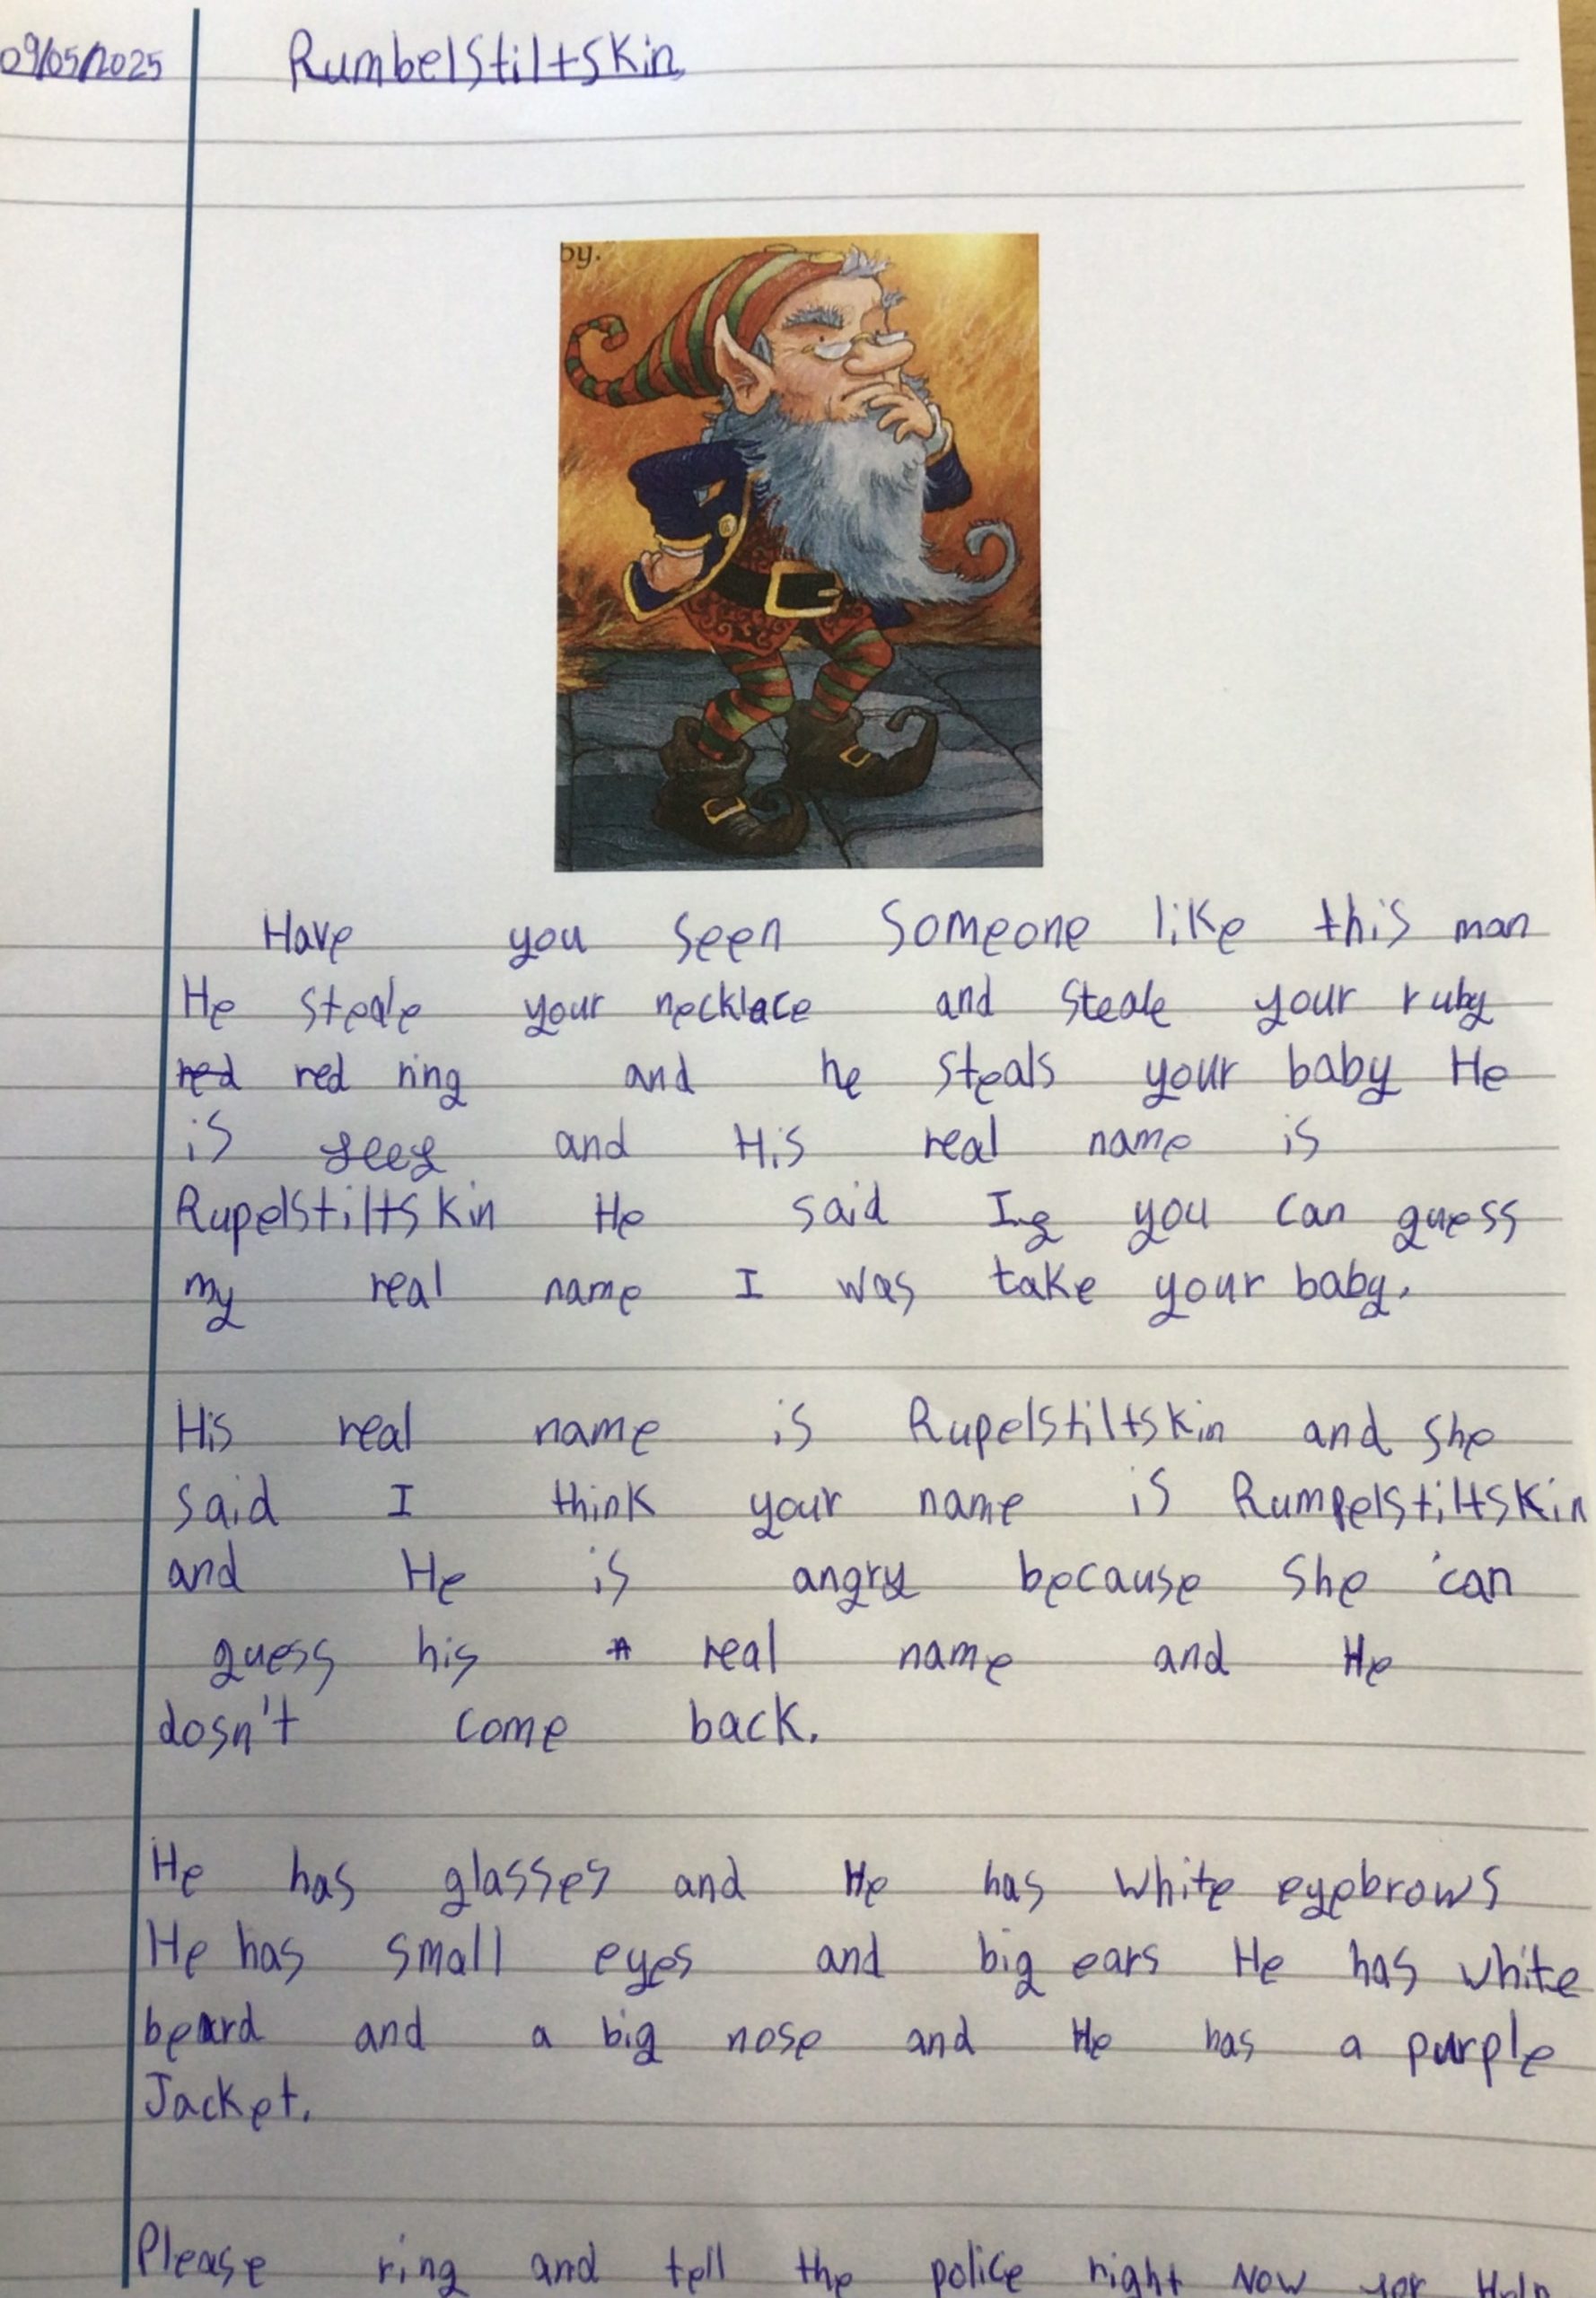 09/05/2025 Rumbelstiltskin
by."
Have you seen Someone like this man
He steale your necklace and steale your ruby
red red ring and he steals your baby He
is and His real name is
Rupelstiltskin He said you can guess
my real name I was take your baby.
His real name is Rupelstiltskin and she
said I think your name is Rumpelstiltskin
and He is angry because she can
guess his real name and He
dosn't come back.
He has glasses and He has white eyebrows
He has small eyes and big ears He has white
beard and a big nose and He has a purple
Jacket.
Please ring and tell the police right now for